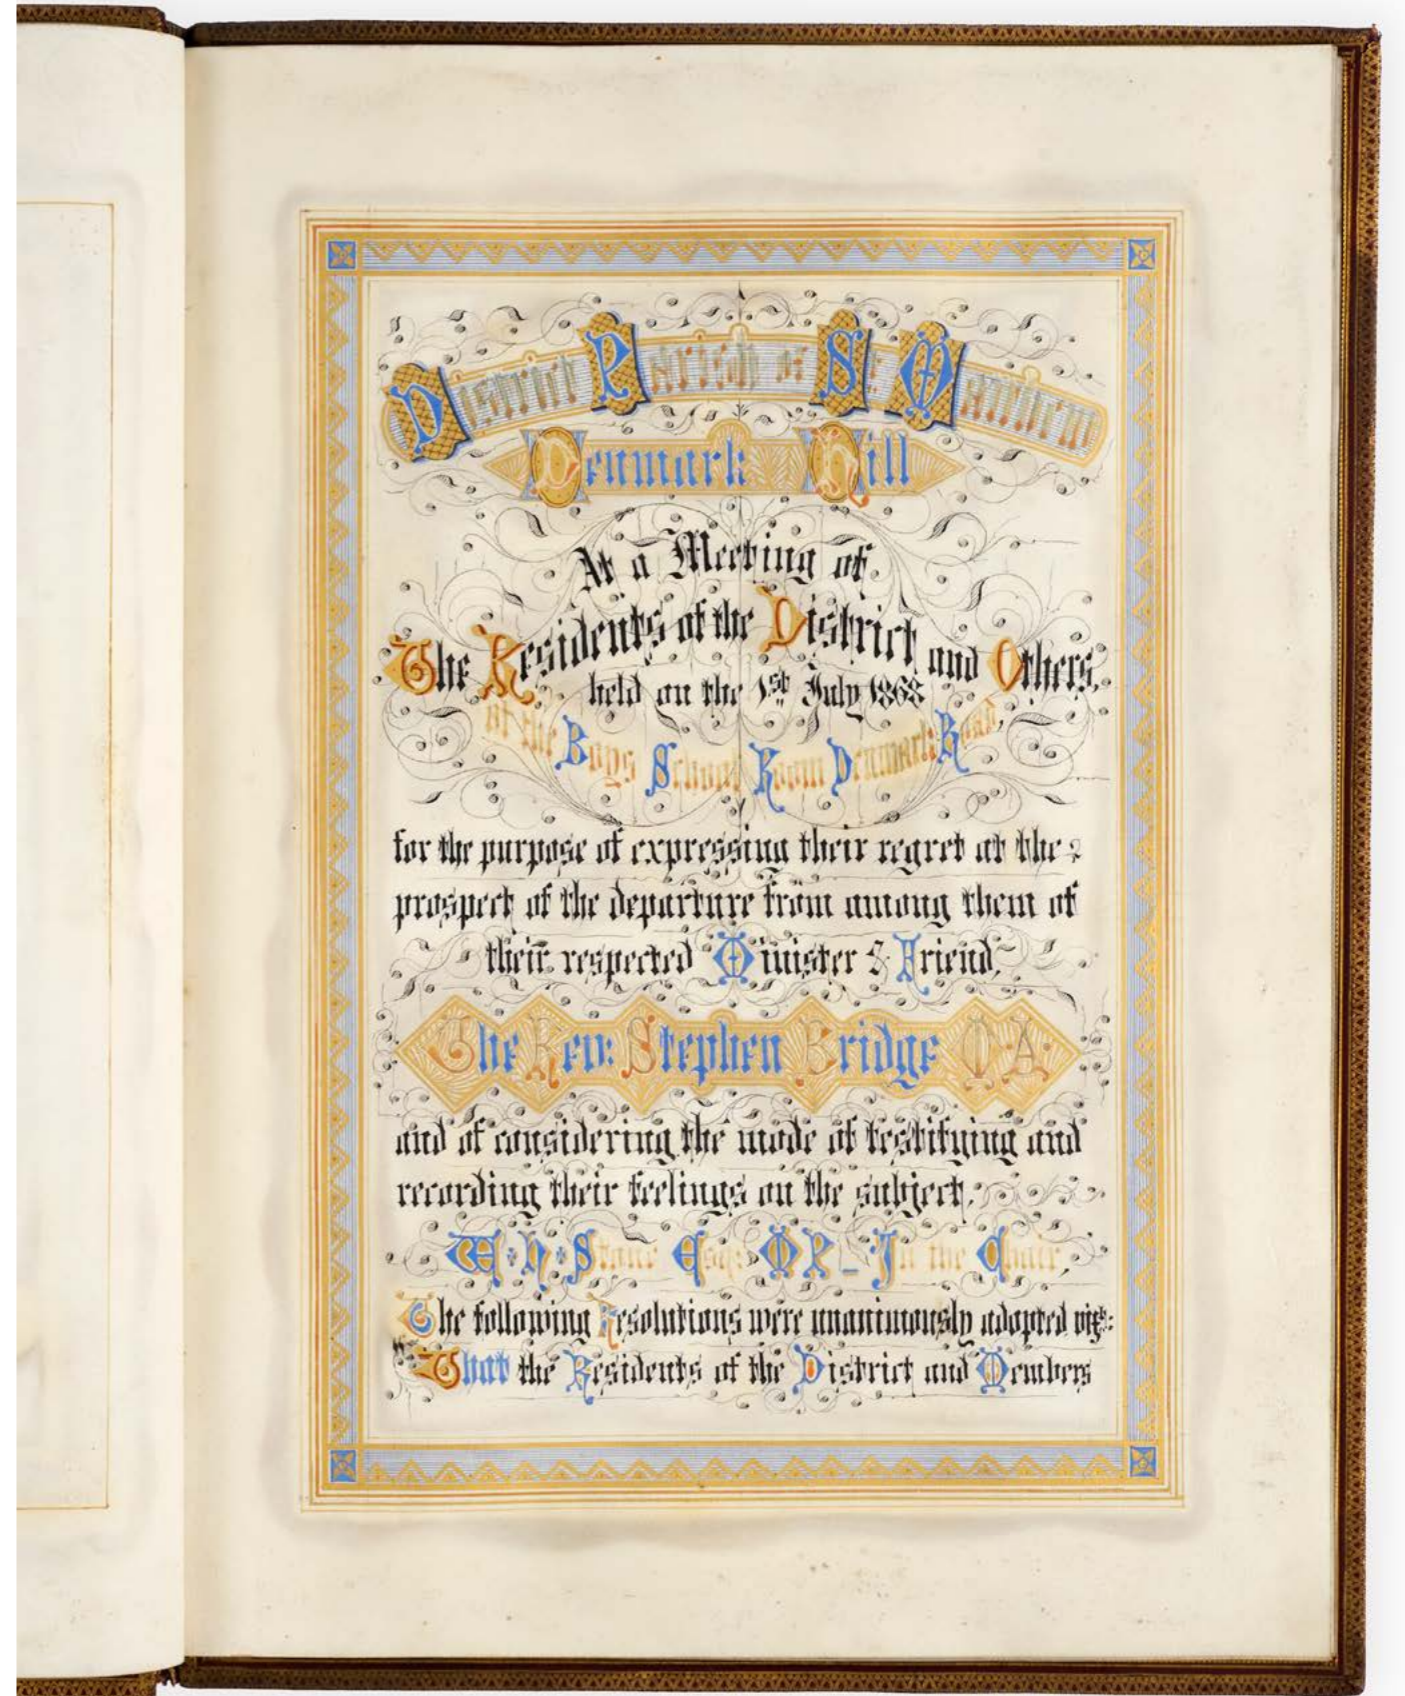 District Parish of St. Matthew
Denmark Hill
At a Meeting of
The Residents of the District and Others,
held on the 1st July 1868
at the Boys School Room Denmark Road,
for the purpose of expressing their regret at the
prospect of the departure from among them of
their respected Minister & Friend,
The Rev: Stephen Bridge M.A.
and of considering the mode of testifying and
recording their feelings on the subject,
W.H. Stone Esq: MP _ In the Chair,
The following Resolutions were unanimously adopted viz:
That the Residents of the District and Members